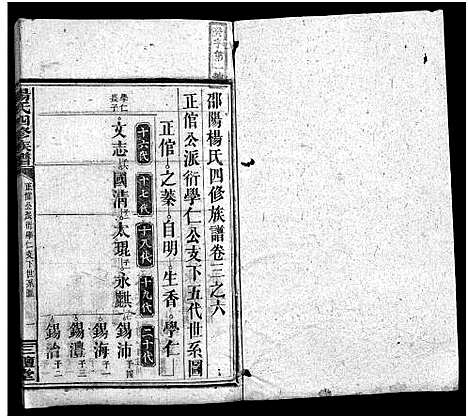 邵陽楊氏四修族譜卷三之六
正倌公派衍學仁公支下五代世系圖
正倌 之蓁 自明 生香 學仁
十六代 十七代 十八代 十九代 二十代
學仁長子
文志 國清 太琨 永麒 錫沛
錫海
錫澧
錫治
楊氏四修族譜
正倌公派衍學仁公支下世系圖